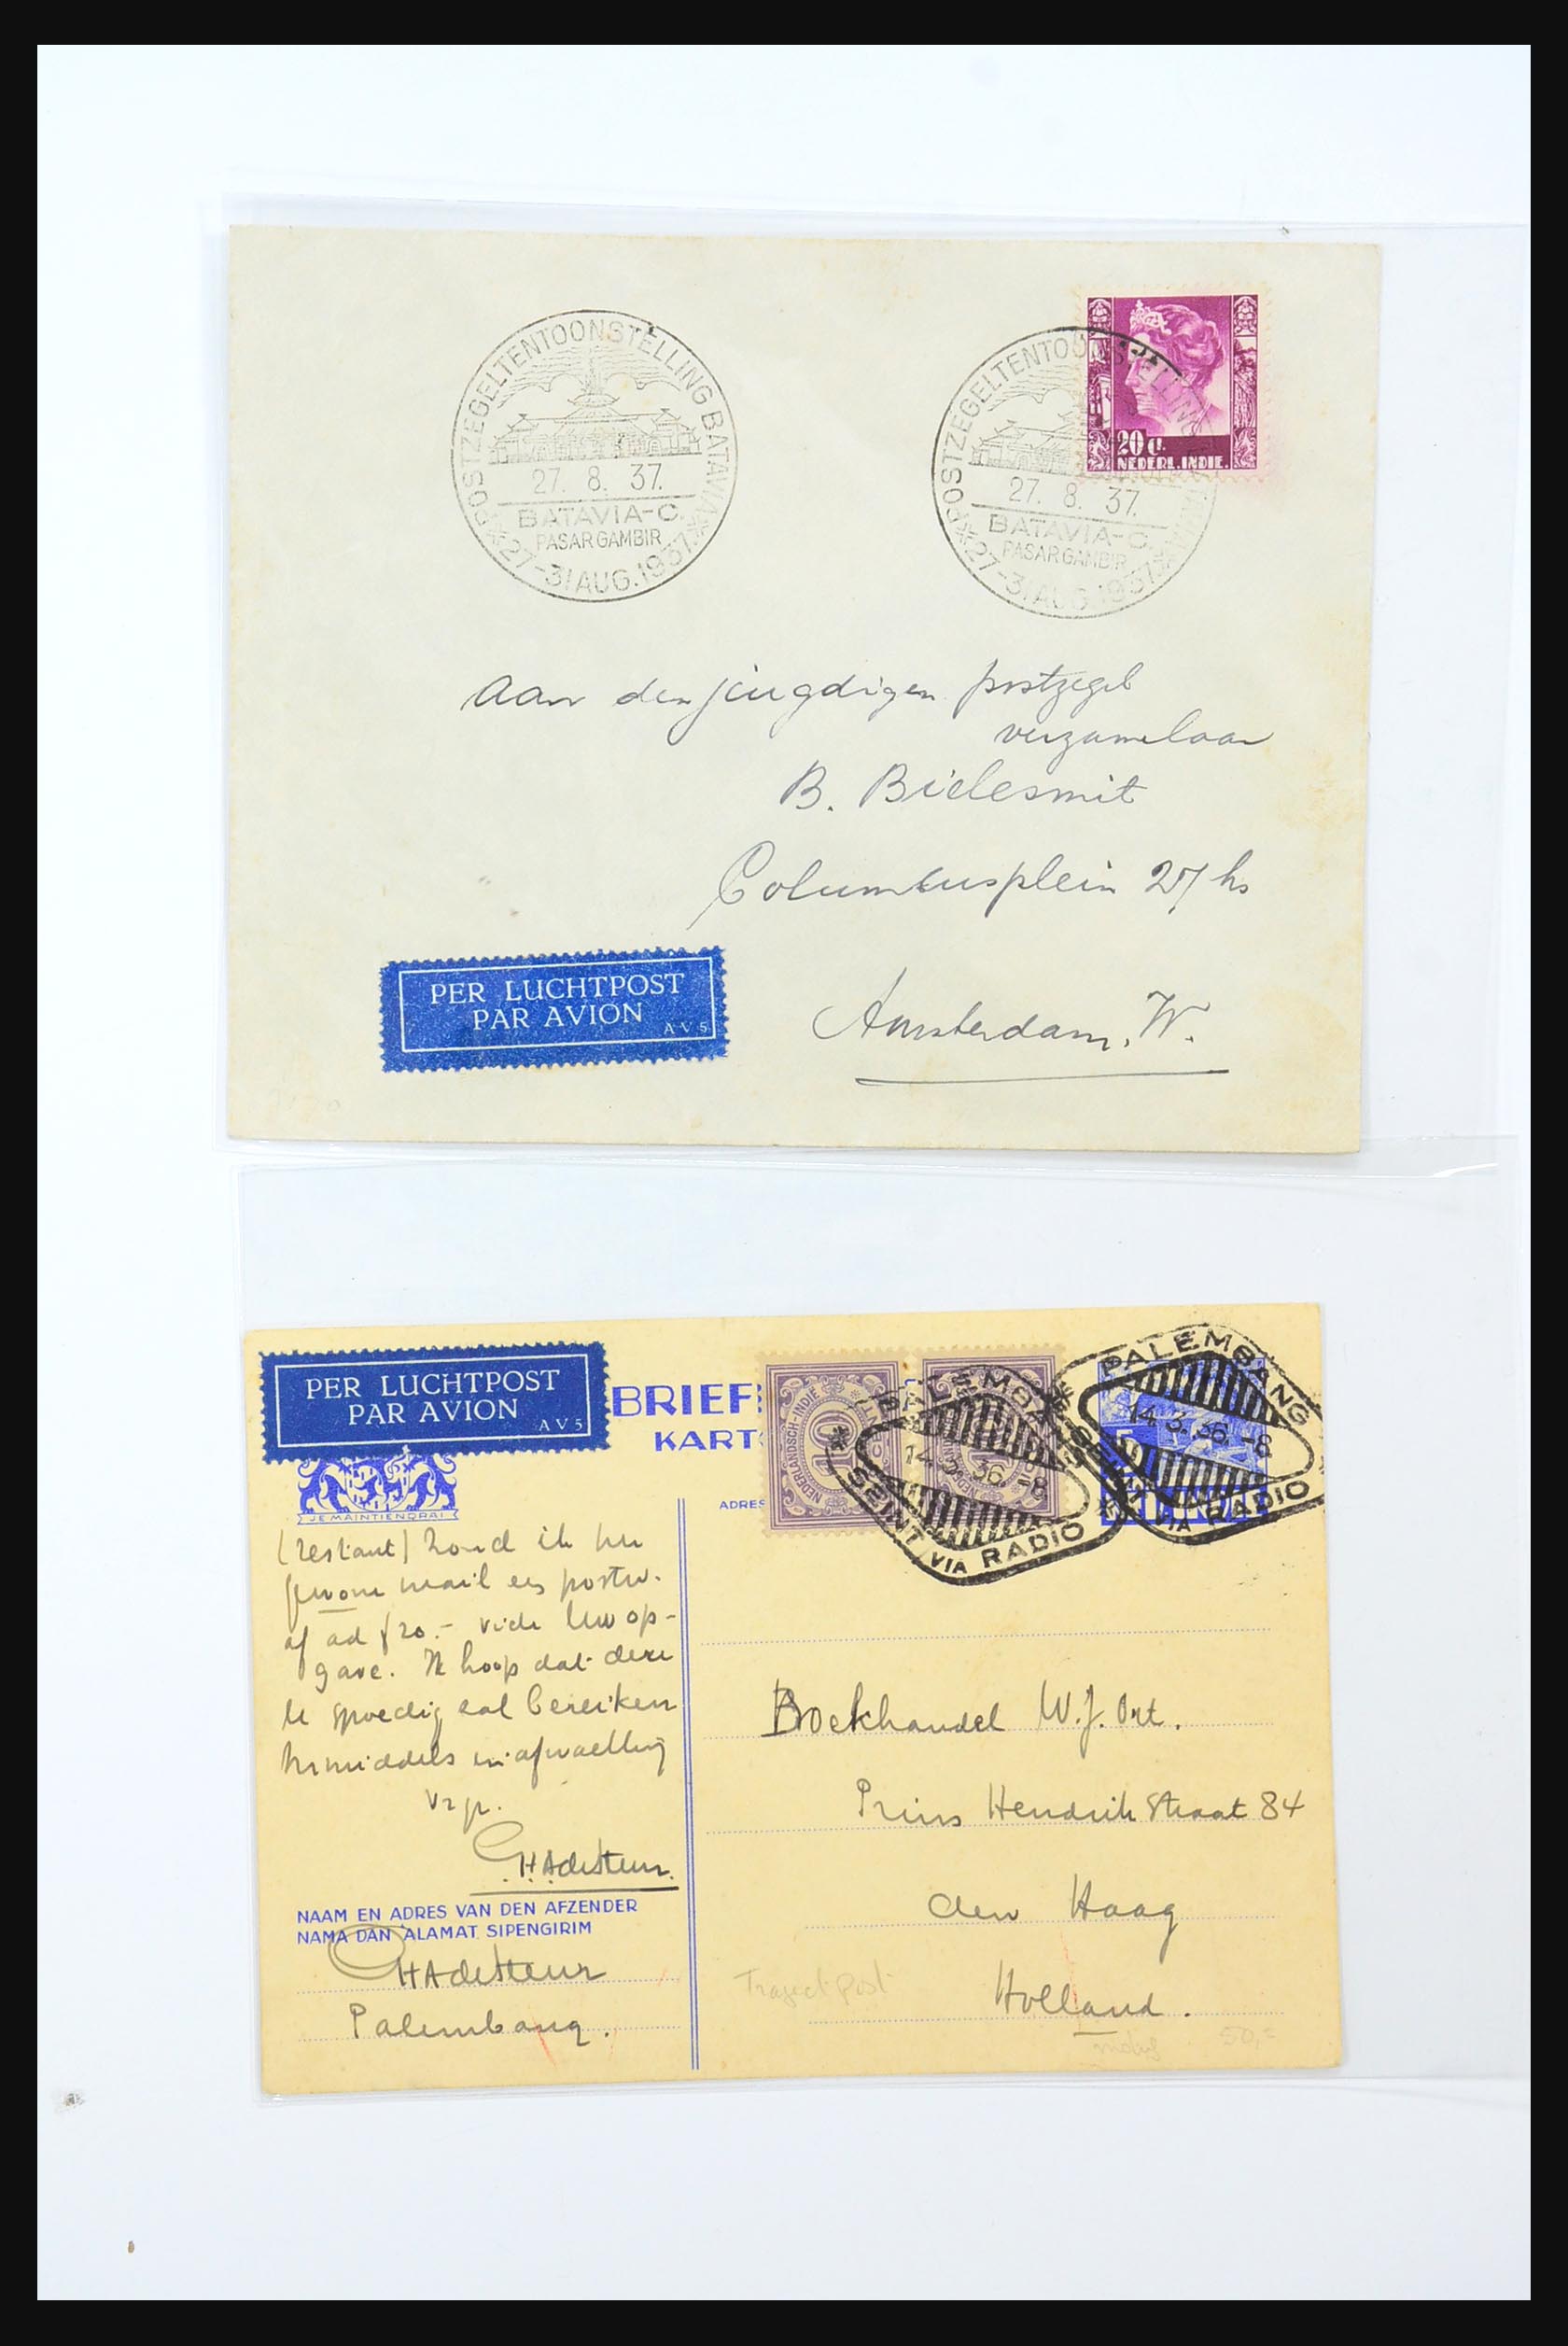 POSTZEGELTENTOONSTELLING BATAVIA
27. 8. 37.
BATAVIA-C.
PASAR GAMBIR
27-31 AUG. 1937.
POSTZEGELTENTOONSTELLING BATAVIA
27. 8. 37.
BATAVIA-C.
PASAR GAMBIR
27-31 AUG. 1937.
20 ct.
NEDERL. INDIE.
Aan den jeugdigen postzegel
verzamelaar
B. Bielesmit
Columbusplein 27 hs
Amsterdam. W.
PER LUCHTPOST
PAR AVION
AV5
PER LUCHTPOST
PAR AVION
AV5
BRIEF
KART
JE MAINTIENDRAI
ADRES
NEDERLANDSCH-INDIE
10
PALEMBANG
14.3.36.-8
SEINT VIA RADIO
PALEMBANG
14.3.36.-8
SEINT VIA RADIO
(restant) zond ik per
gewone mail een postw.
af ad f20.- vide Uw op-
gave. Ik hoop dat deze
U spoedig zal bereiken
Inmiddels in afwachting
NAAM EN ADRES VAN DEN AFZENDER
NAMA DAN ALAMAT SIPENGIRIM
Palembang.
Boekhandel W.J. Ort.
Prins Hendrik Straat 84
den Haag
Holland.
Trajectpost
50,=